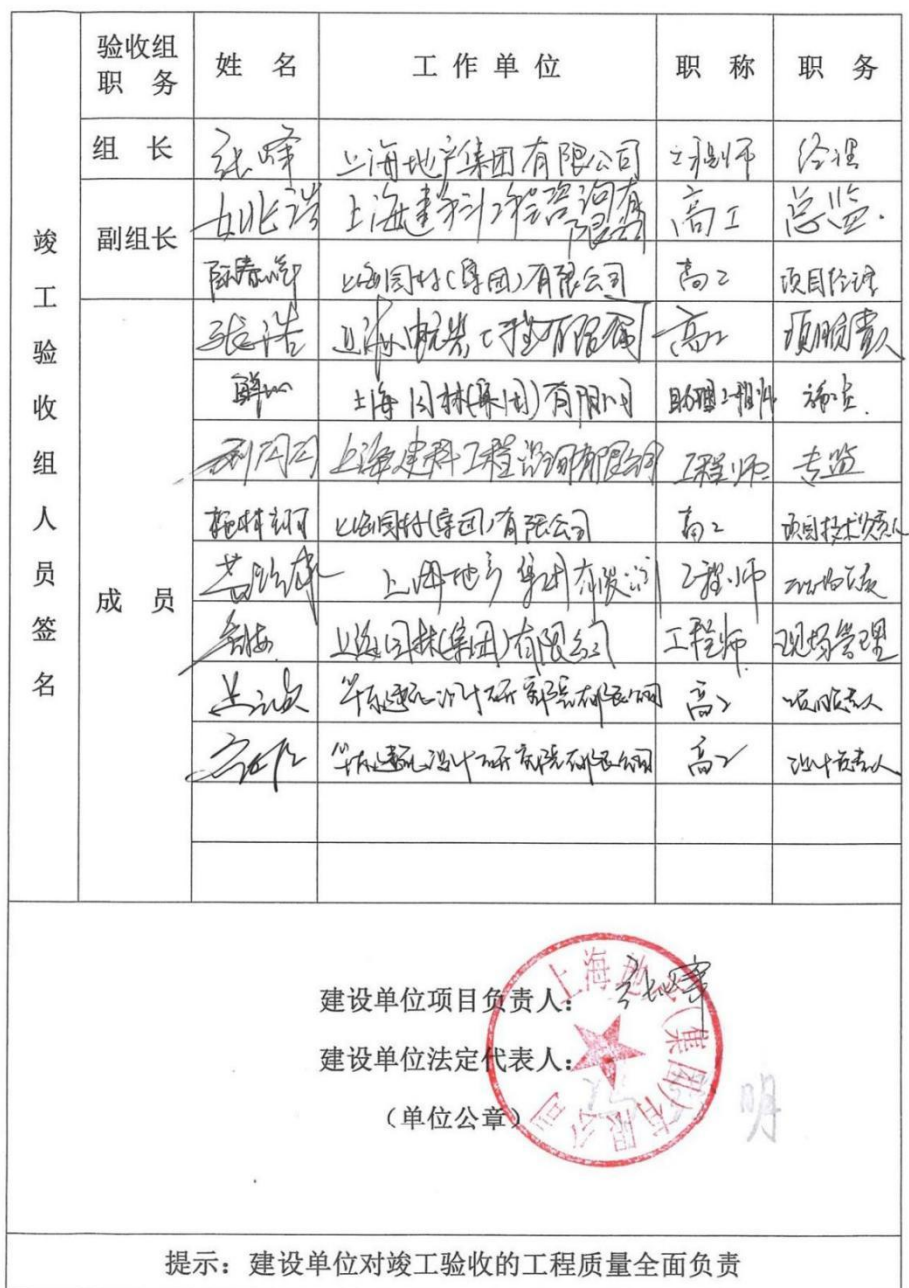 验收组职 务 姓 名 工 作 单 位 职 称 职 务
竣工验收组人员签名
组 长 张峰 上海地产集团有限公司 工程师 经理
副组长 上海建科工程咨询有限公司 高工 总监.
上海园林(集团)有限公司 高工 项目经理
成 员
张浩 高工 项目负责人
上海园林(集团)有限公司 助理工程师
上海建科工程咨询有限公司 工程师 专监
上海园林(集团)有限公司 高工 项目技术负责人
上海地产集团有限公司 工程师
上海园林(集团)有限公司 工程师 现场管理
华东建筑设计研究院有限公司 高工 项目负责人
华东建筑设计研究院有限公司 高工 设计负责人
建设单位项目负责人: 张峰
建设单位法定代表人:
(单位公章)
上海地产(集团)有限公司
明
提示:建设单位对竣工验收的工程质量全面负责